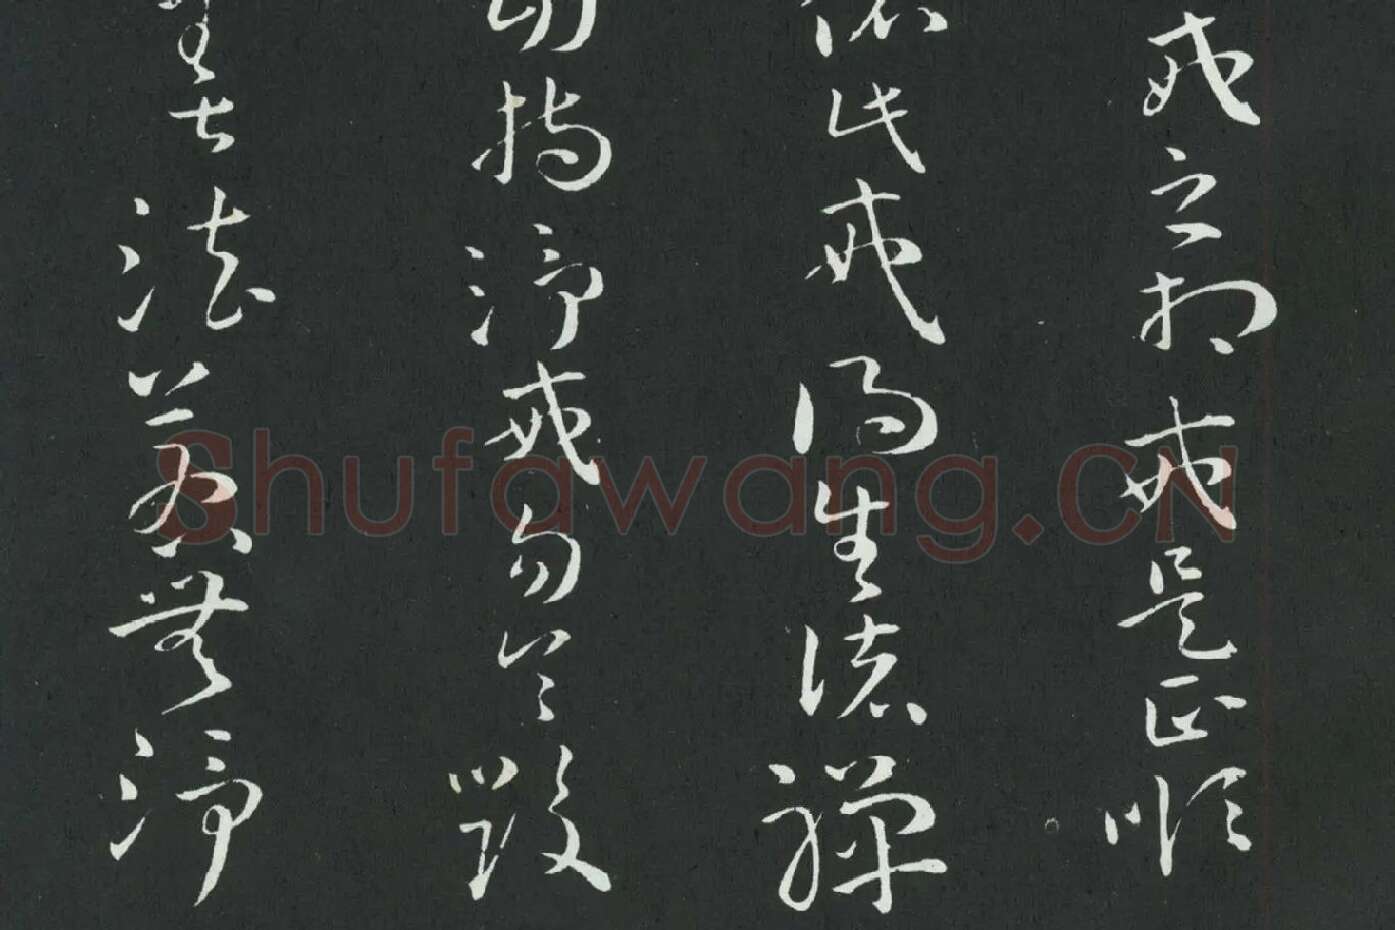 戒之相戒是正順
依此戒得生諸禪
持淨戒勿令毀
法若無淨
Shufawang.CN